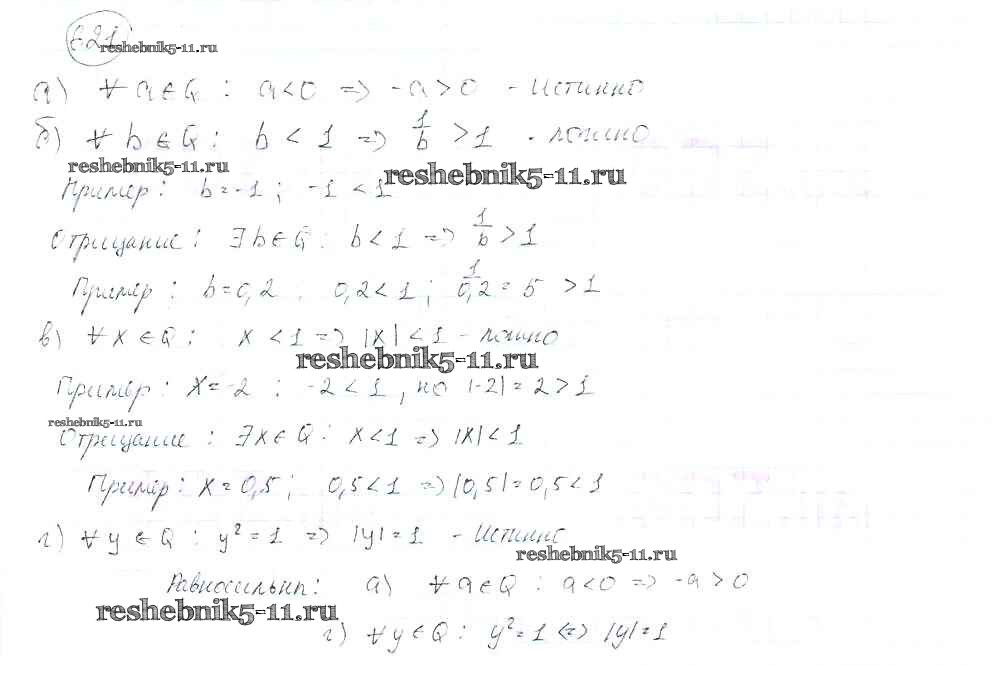 621 reshebnik5-11.ru
а) ∀ a ∈ Q : a < 0 => -a > 0 - Истинно
б) ∀ b ∈ Q : b < 1 => 1/b > 1 - ложно
reshebnik5-11.ru reshebnik5-11.ru
Пример : b = -1 ; -1 < 1
Отрицание : ∃ b ∈ Q : b < 1 => 1/b > 1
Пример : b = 0,2 ; 0,2 < 1 ; 1/0,2 = 5 > 1
в) ∀ x ∈ Q : x < 1 => |x| < 1 - ложно
reshebnik5-11.ru
Пример : x = -2 ; -2 < 1 , но |-2| = 2 > 1
reshebnik5-11.ru
Отрицание : ∃ x ∈ Q : x < 1 => |x| < 1
Пример : x = 0,5 ; 0,5 < 1 => |0,5| = 0,5 < 1
г) ∀ y ∈ Q : y² = 1 => |y| = 1 - Истинно
reshebnik5-11.ru
Равносильны : а) ∀ a ∈ Q : a < 0 => -a > 0
reshebnik5-11.ru
г) ∀ y ∈ Q : y² = 1 <=> |y| = 1